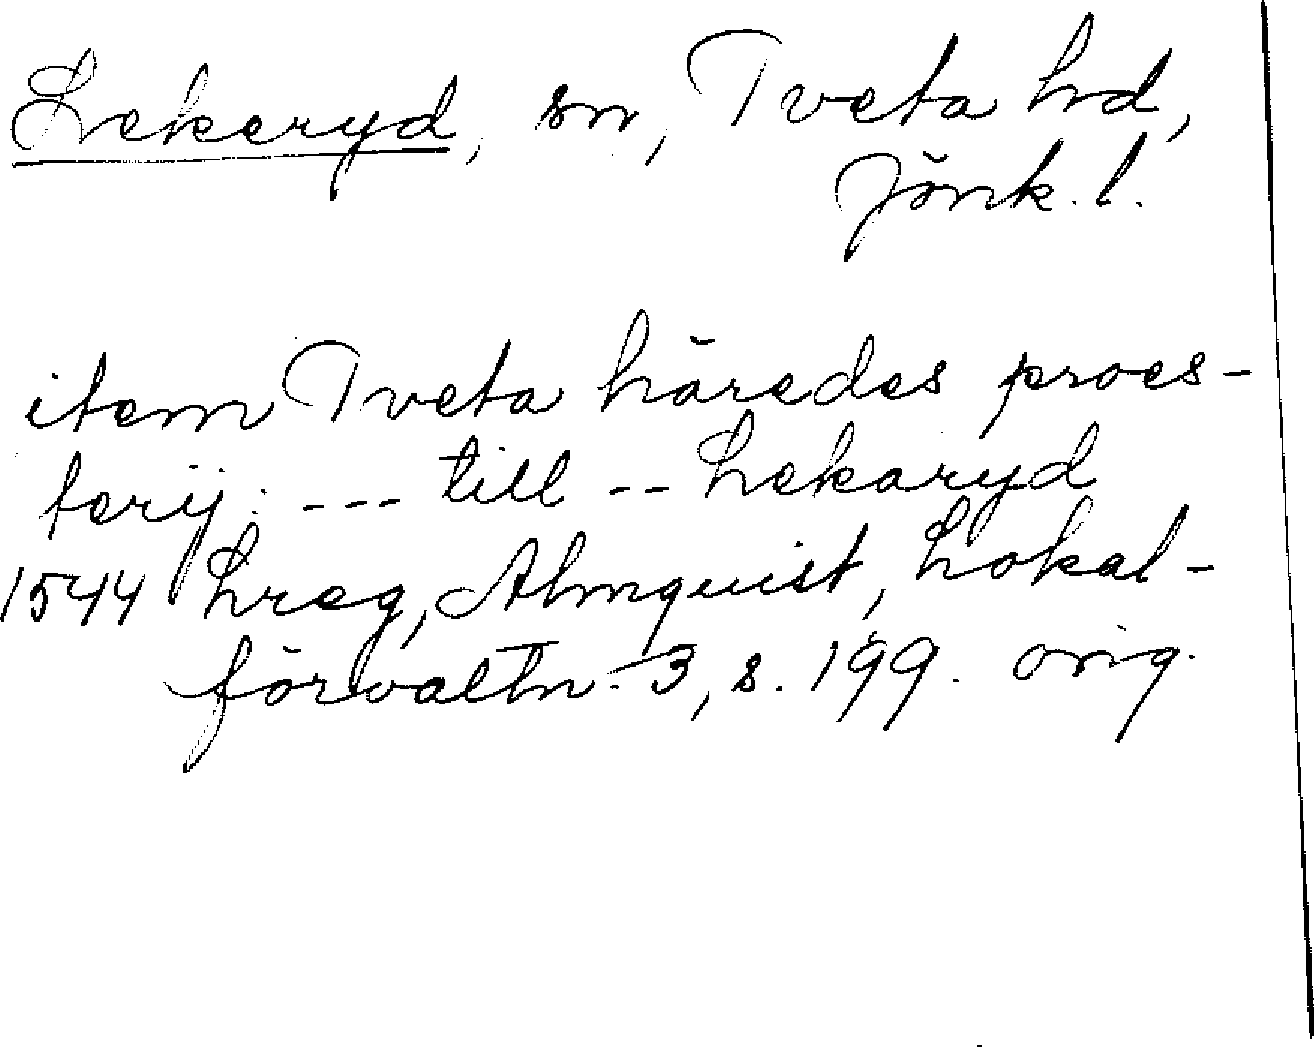 Lekeryd, sn, Tveta hd,
Jönk. l.
item Tveta häredes proes-
terij: --- till -- Lekaryd
1544 Lreg, Almquist, Lokal-
förvaltn. 3, s. 199. orig.